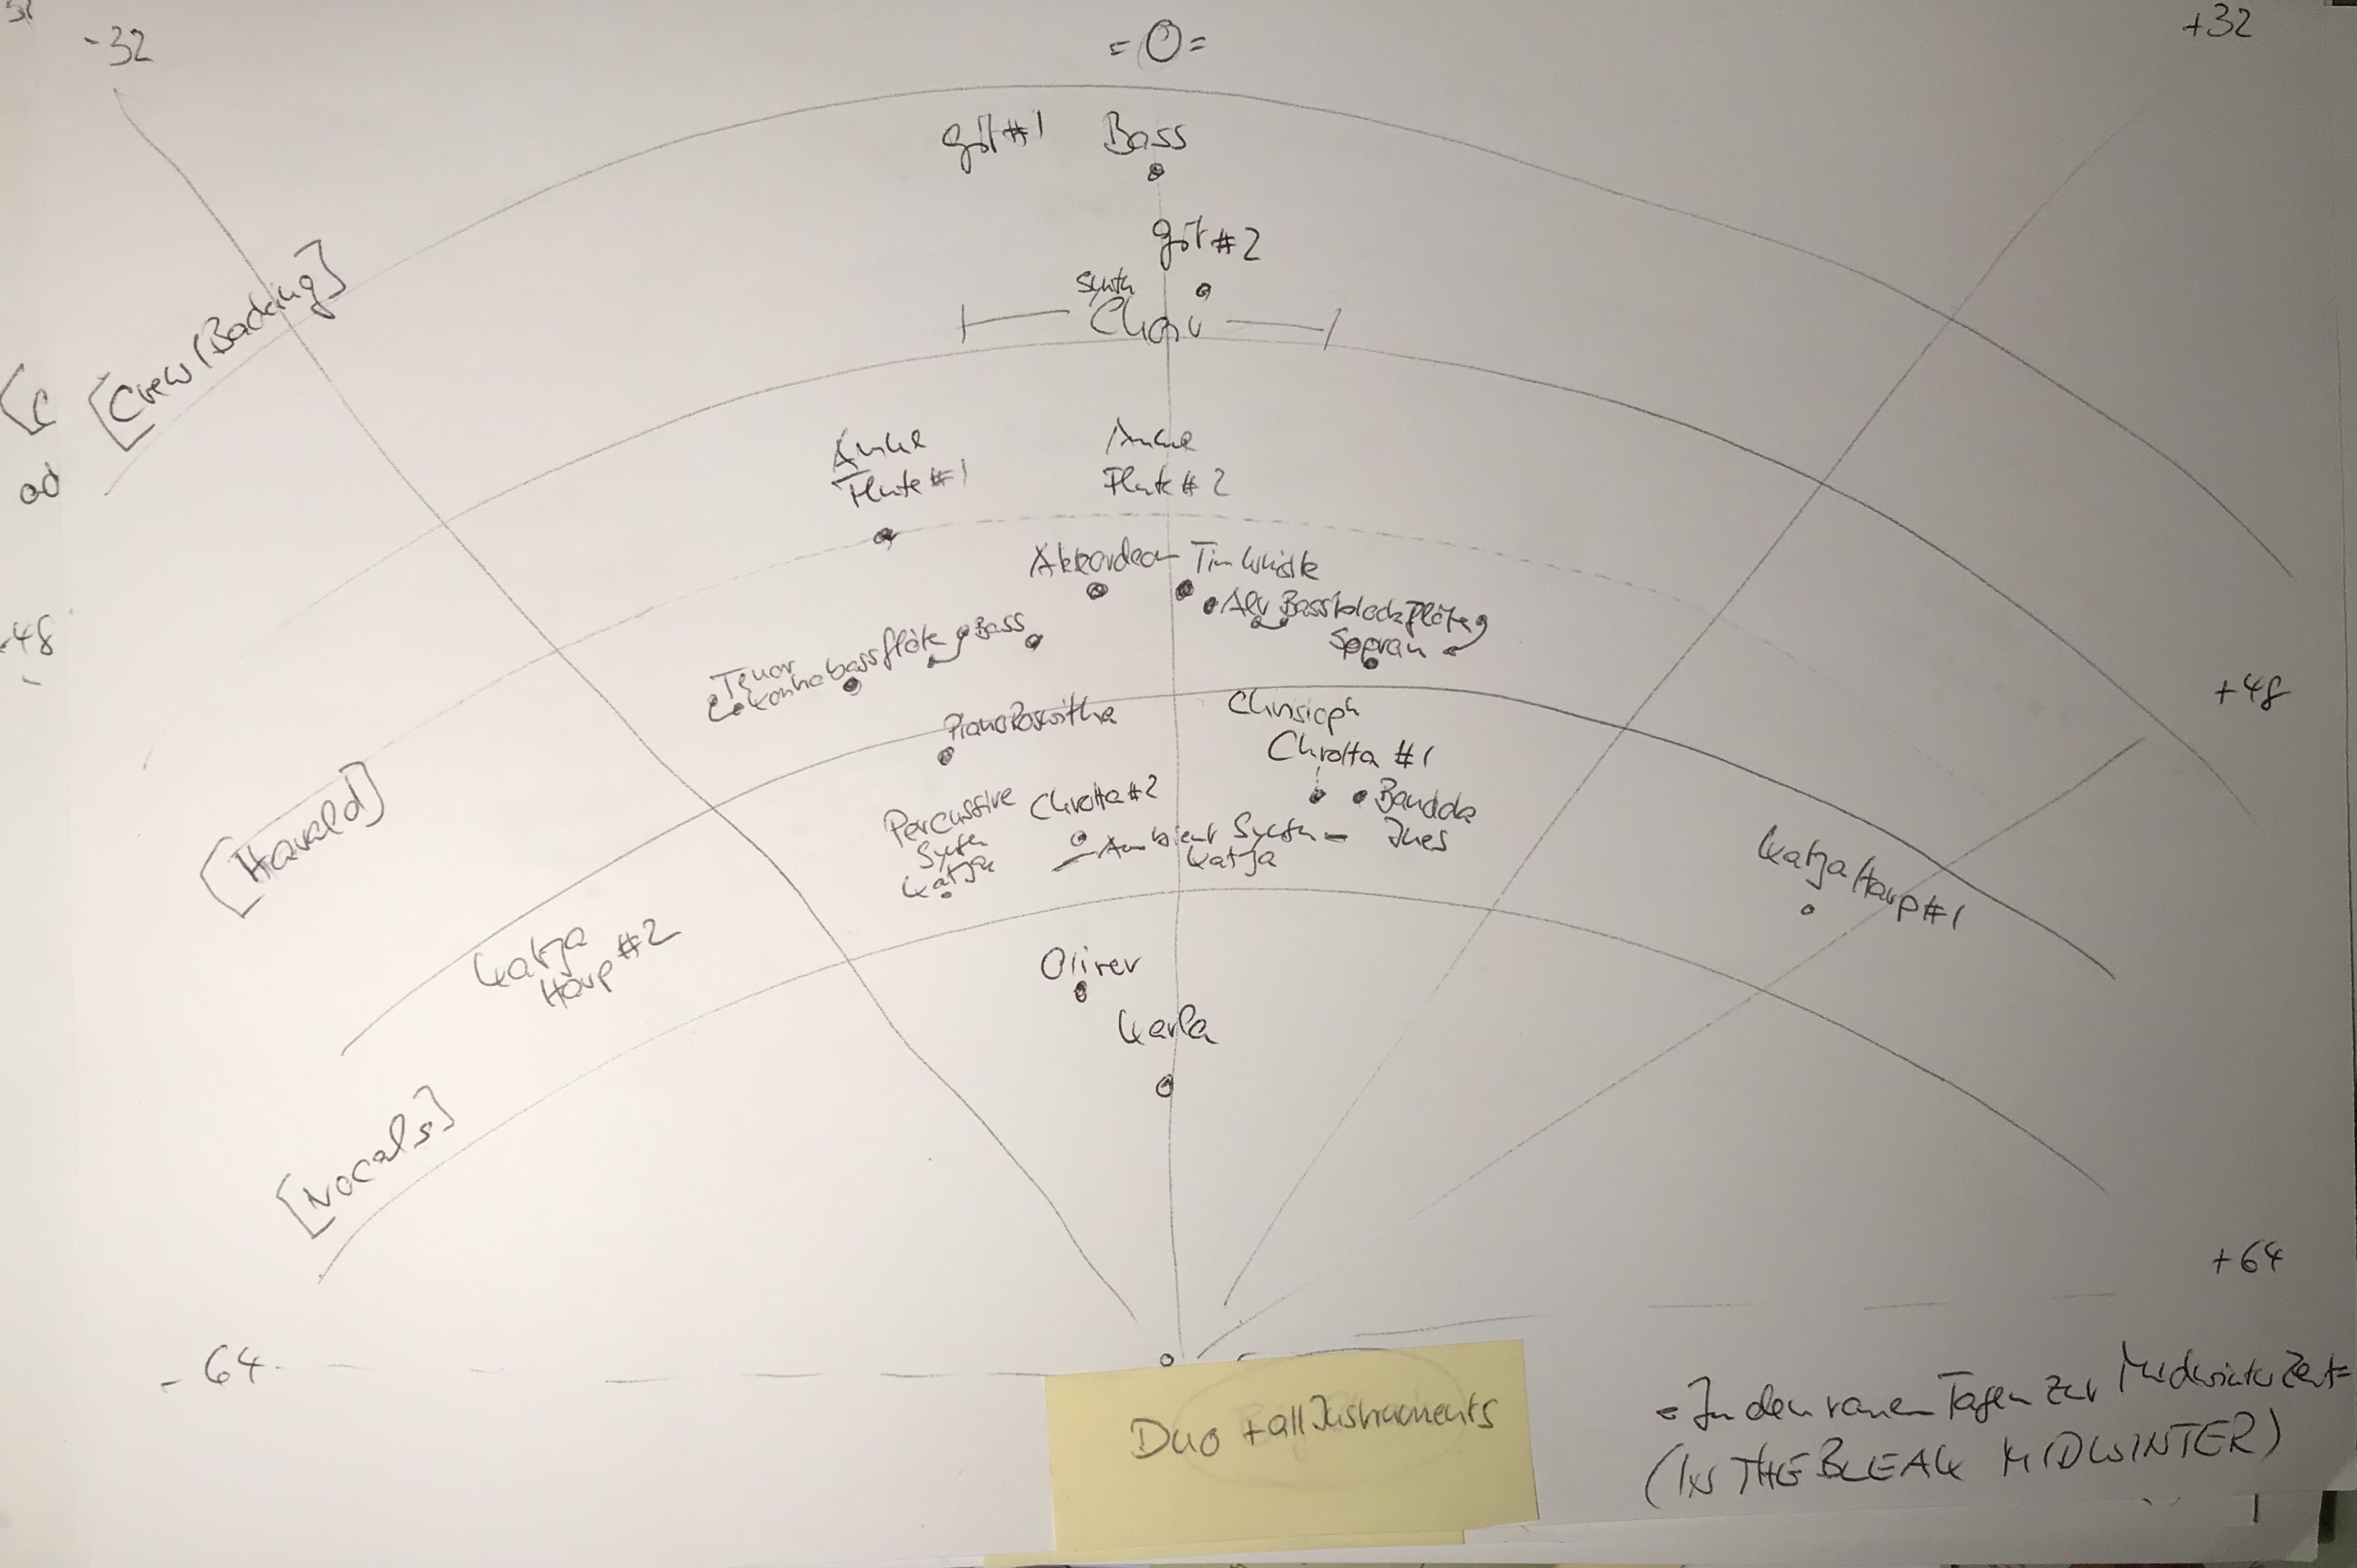 -32
=0=
+32
git #1
Bass
git #2
Synth
Choir
[Crew/Backing]
Anke
Flute #1
Anke
Flute #2
Akkordeon
Tin Whistle
Alt Bassblockflöte
Sopran
Tenor
Kontrabassflöte
Bass
-48
+48
Piano Roswitha
Christoph
Chrotta #1
Percussive
Synth
Katja
Chrotta #2
Ambient Synth
Katja
Ines
[Harald]
Katja Harp #1
Katja
Harp #2
Oliver
Karla
[Vocals]
+64
-64
Duo + all Instruments
=In den rauen Tagen zur Midwinterzeit=
(IN THE BLEAK MIDWINTER)